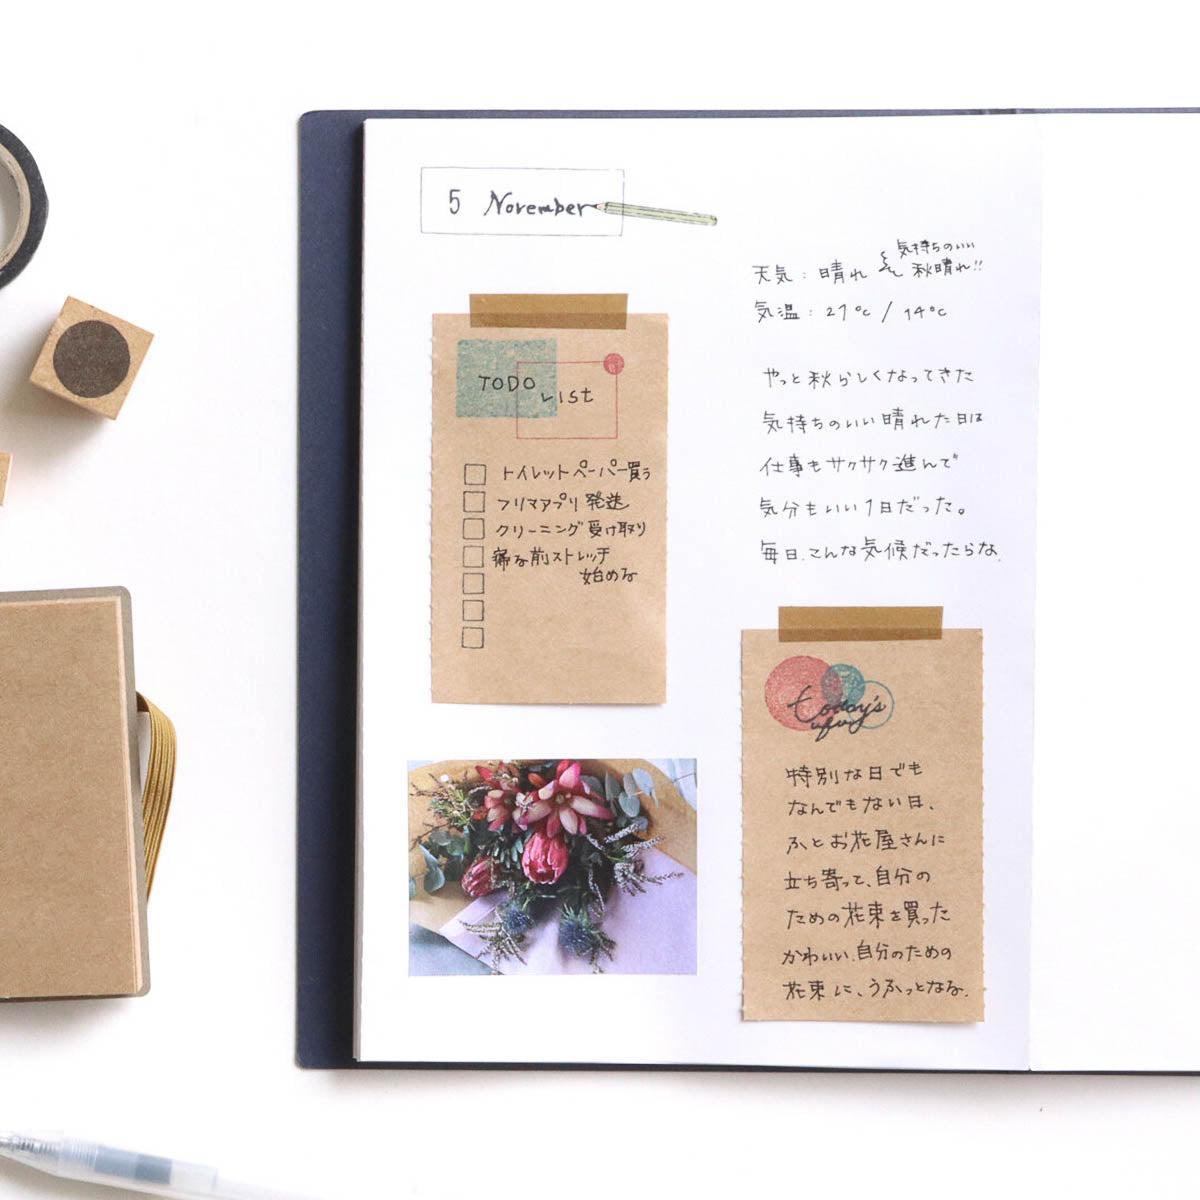 5 November
天気：晴れ
気持ちのいい
秋晴れ!!
気温：21℃ / 14℃
TODO
LIST
トイレットペーパー買う
フリマアプリ発送
クリーニング受け取り
寝る前ストレッチ
始める
やっと秋らしくなってきた
気持ちのいい晴れた日は
仕事もサクサク進んで
気分もいい1日だった。
毎日、こんな気候だったらな、
today's
特別な日でも
なんでもない日、
ふとお花屋さんに
立ち寄って、自分の
ための花束を買った
かわいい、自分のための
花束に、うふっとなる、